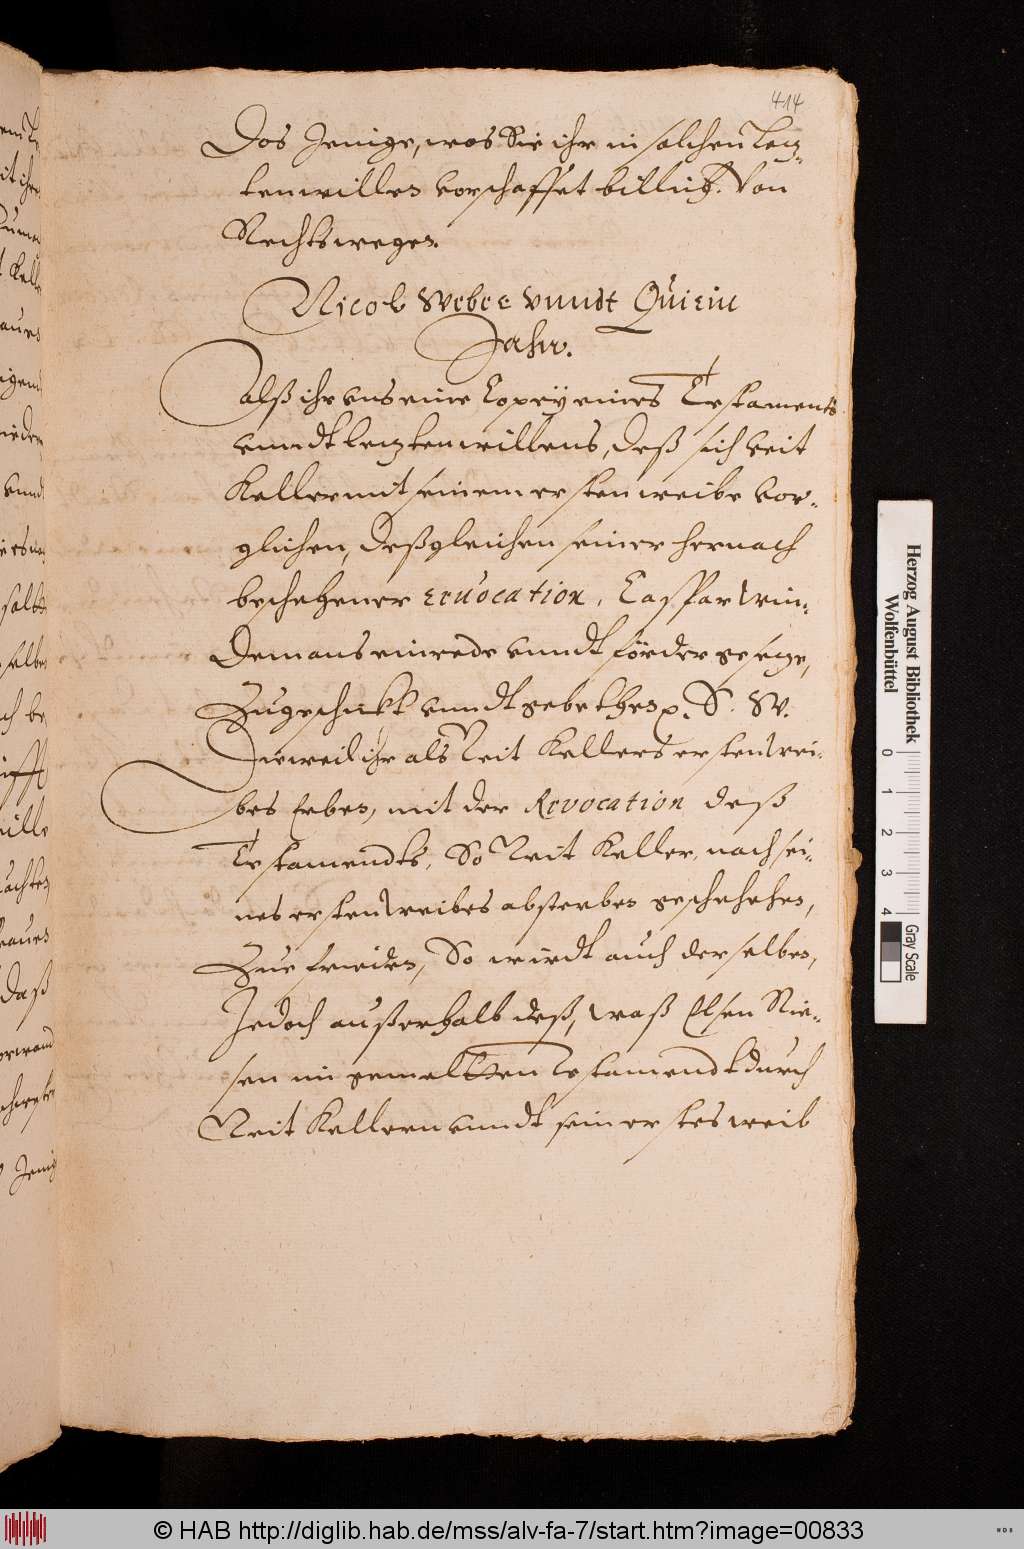 414
Das Jenige, was Sie ihr in solchen Letz-
tenwillen vorschaffet billich. Von
Rechtswegen.
Nicol Weber vnndt Quirin
Jahn.
Alß ihr vns eine Copey eines Testaments
vnndt letztenwillens, deß sich Veit
Keller mit seinem ersten weibe vor-
glichen, deßgleichen seiner hernach
beschehener revocation, Caspar Win-
demans einrede vnndt förder gesetze,
Zugeschickt vnndt gebethen p. S. W.
Dieweil ihr als Veit Kellers ersten Wei-
bes Erben, mit der Revocation deß
Testamendts, So Veit Keller, nach sei-
nes ersten Weibes absterben geschehehen,
Zue frieden, So wirdt auch derselben,
Jedoch außerhalb deß, waß Elsen Rie-
sen im gemeltten Testamendt durch
Veit Kellern vnndt sein erstes weib
Herzog August Bibliothek
Wolfenbüttel
0 1 2 3 4
Gray Scale
© HAB http://diglib.hab.de/mss/alv-fa-7/start.htm?image=00833